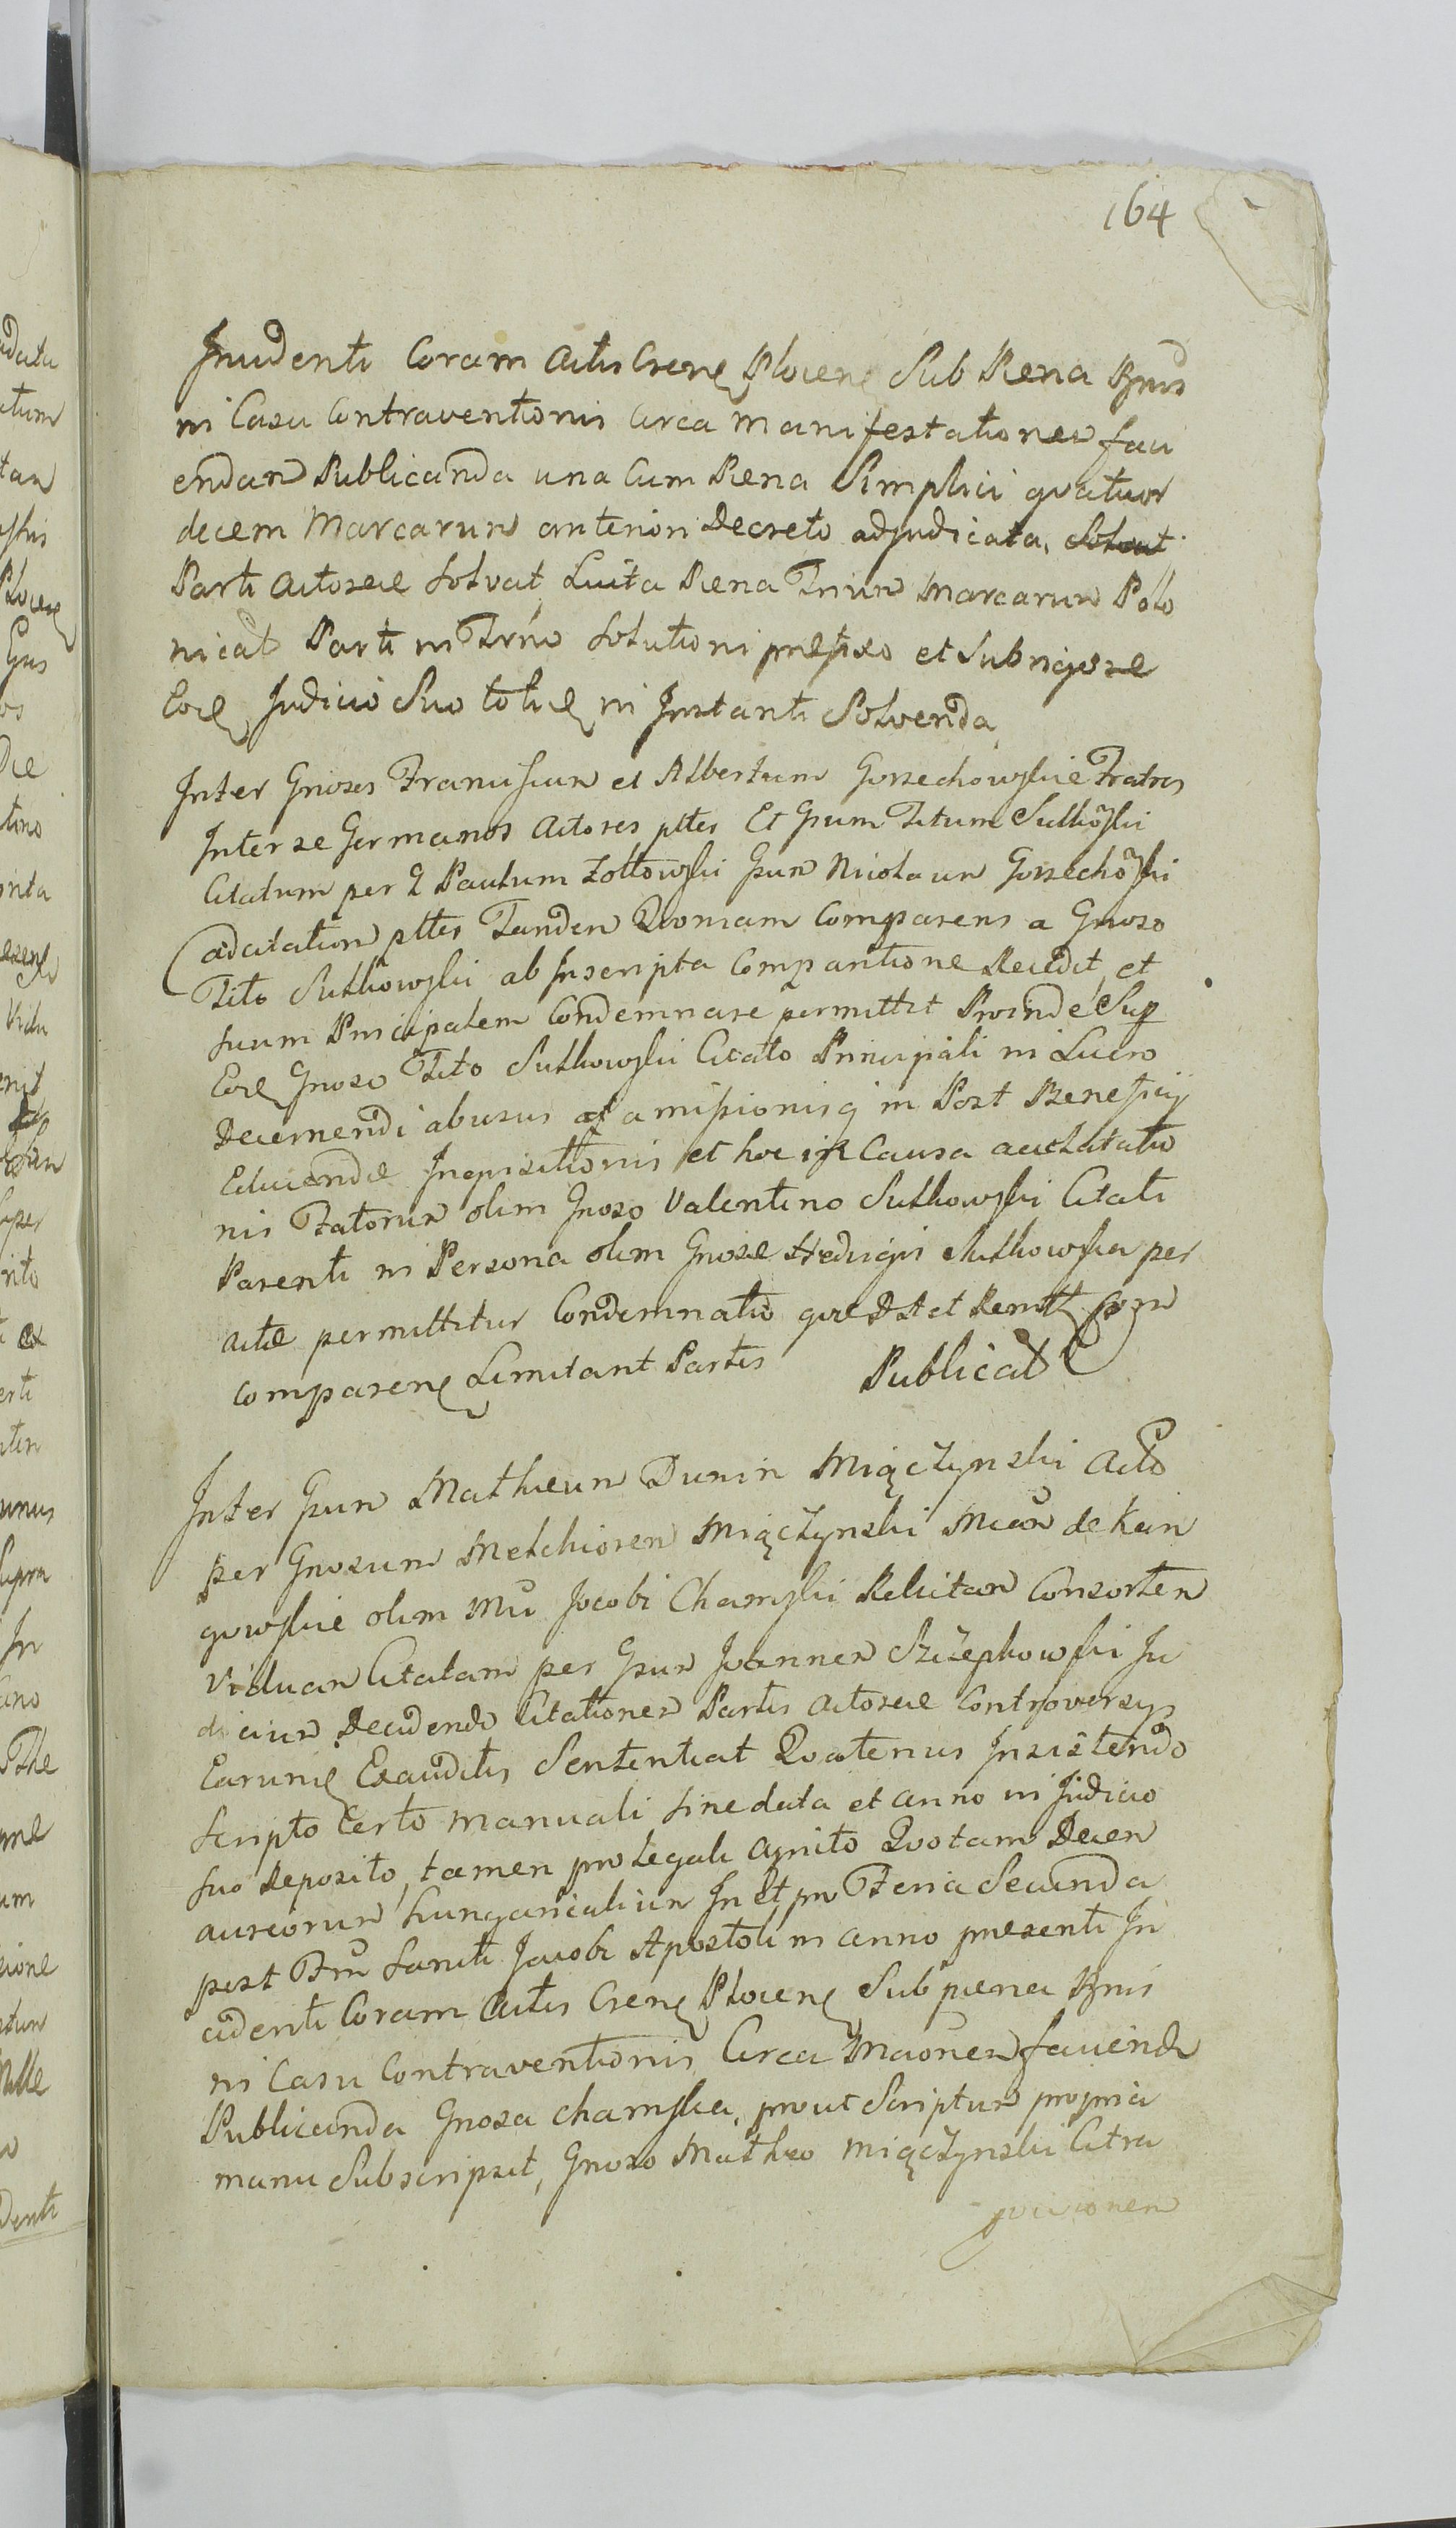 164
Incidenti Coram Actis Cren Plocen Sub Pena Bnis
in Casu Contraventionis Circa Manifestationem faci
endam Publicanda una Cum Pena Simplici quatuor
decem Marcarum anteriori Decreto adjudicata,
Parti Actoreae Solvat, Luita Pena Trium Marcarum Polo
nical Parti in Trno Solutioni praefixo et Sub rigore
Judicio Suo in Instanti Solvenda
Inter Gnosos Franciscum et Albertum Gorzechowskie Fratres
Inter se Germanos Actores pltes Et Gsum Titum Sutkoski
Citatum per G Paulum Zołtowski Gsum Nicolaum Gorzechoski
adcitatum pltes Tandem Quoniam Comparens a Gnoso
Tito Sutkowski ab Inscripta Compantione Recedit, et
Suum Principalem Condemnare permittit Proinde Sup
Gnoso Tito Sutkowski Citato Principali in Lucro
Decernendi abusus amissionisq in Post Beneficij
Educendae Inquisitionis et hoc in Causa
nis olim Gnoso Valentino Sutkowski Citati
Parenti in Persona olim Gnosae Hedvigis Sutkowska per
actae permittitur Condemnatio quae Dat et Remtt
comparen Limitant Partes Publicat
Inter Gsum Mathaeum Dunin Miączynski Acto
per Gnosum Melchiorem Miączynski de
gowskie olim Jacobi Chamski Relictam Consortem
Viduam Citatam per Gsum Joannem Szczepkowski Ju
dicium Decidendo Citationem Partis Actoreae Controversys
Earum Exauditis Sententiat Quatenus Insistendo
Scripto Certo manuali sine data et anno in Judicio
suo Deposito, tamen pro legali agnito Quotam Decem
aureorum hungaricalium In et pro Feria Secunda
post Ftu Sancti Jacobi Apostoli in anno praesenti In
cidenti Coram Actis Cren Plocen Sub paena Bnis
in Casu Contraventionis Circa Maonem faciend
Publicanda Gnosa Chamska, prout Scriptum propria
manu Subscripsit, Gnoso Mathaeo Miączynski Citra